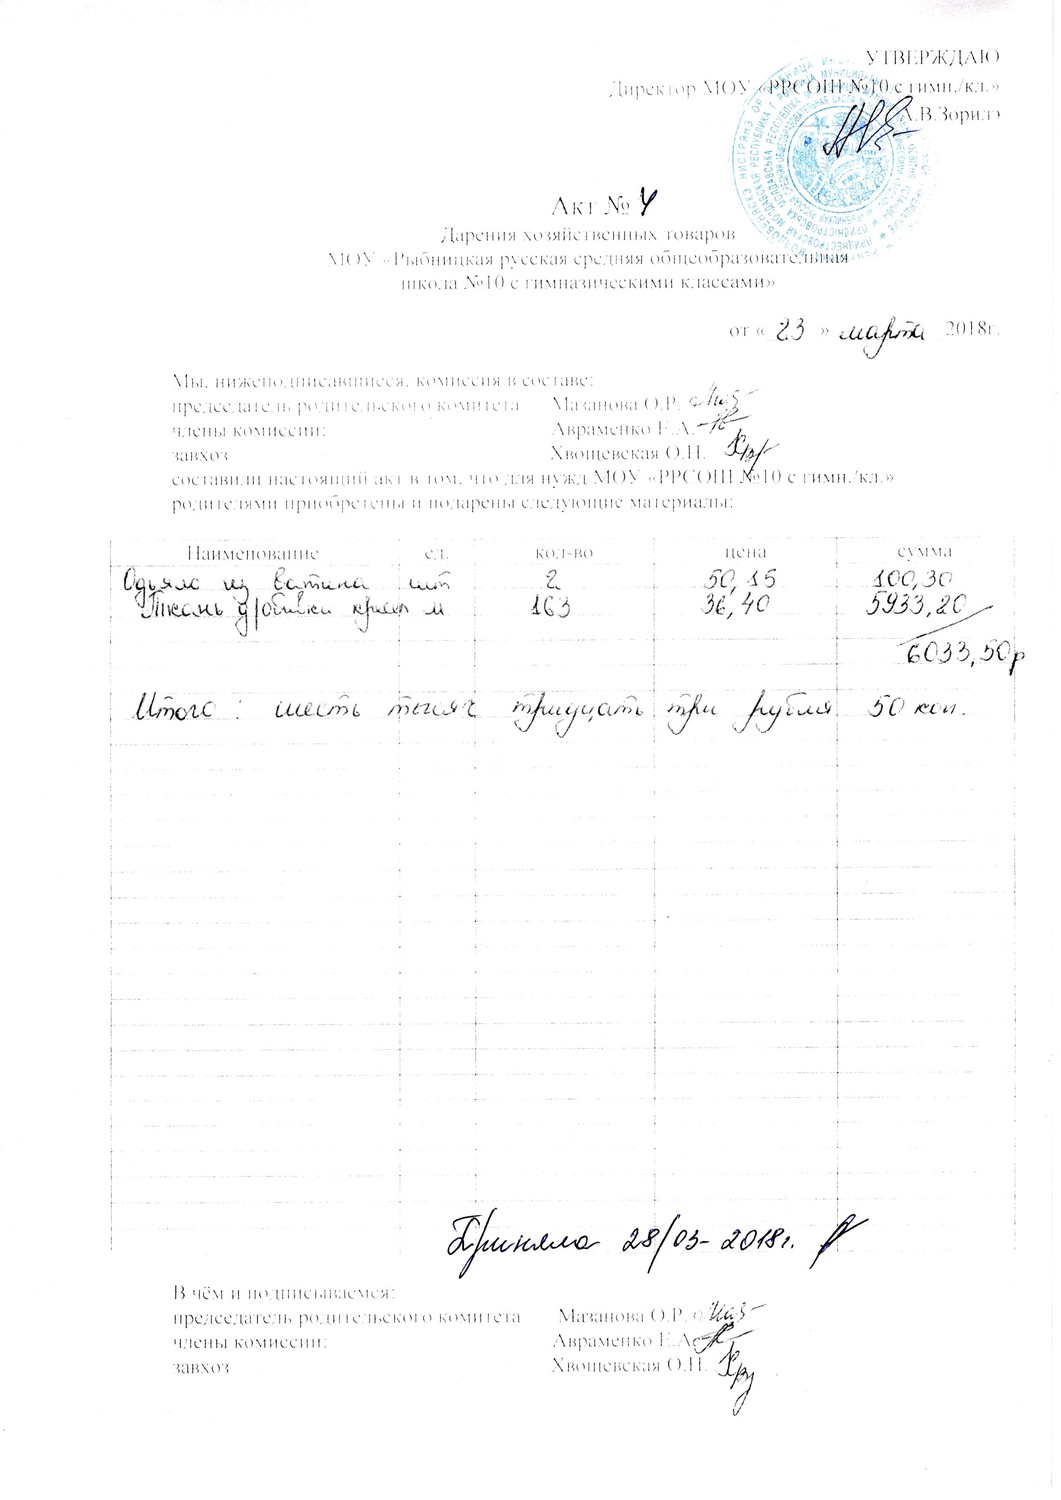 УТВЕРЖДАЮ
Директор МОУ «РРСОШ №10 с гимн./кл.»
А.В.Зорилэ
Акт № 4
Дарения хозяйственных товаров
МОУ «Рыбницкая русская средняя общеобразовательная
школа №10 с гимназическими классами»
от « 23 » марта 2018г.
Мы, нижеподписавшиеся, комиссия в составе:
председатель родительского комитета Мазанова О.Р.
члены комиссии: Авраменко Е.А.
завхоз Хвощевская О.Н.
составили настоящий акт в том, что для нужд МОУ «РРСОШ №10 с гимн./кл.»
родителями приобретены и подарены следующие материалы:
Наименование ед. кол-во цена сумма
Одьяло из ватина шт 2 50,15 100,30
Ткань д/обивки кресл м 163 36,40 5933,20
6033,50р
Итого : шесть тысяч тридцать три рубля 50 коп.
Приняла 28/03-2018г.
В чём и подписываемся:
председатель родительского комитета Мазанова О.Р.
члены комиссии: Авраменко Е.А.
завхоз Хвощевская О.Н.